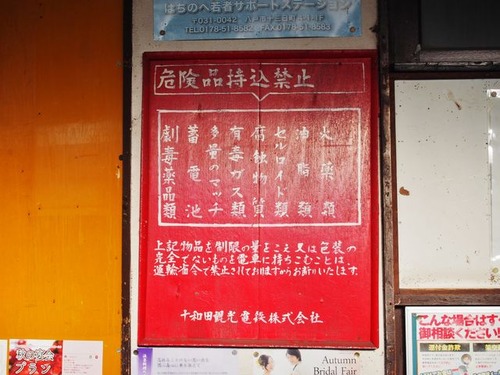 はちのへ若者サポートステーション
危険品持込禁止
火薬類
油脂類
セルロイド類
腐蝕物質
有毒ガス類
多量のマッチ
蓄電池
劇毒薬品類
上記物品を制限の量をこえ又は包装の
完全でないものを電車に持ちこむことは
運輸省令で禁止されておりますからお断りいたします
十和田観光電鉄株式会社
秋の宴会
プラン
Autumn
Bridal Fair
こんな場合はすぐ
御相談ください!